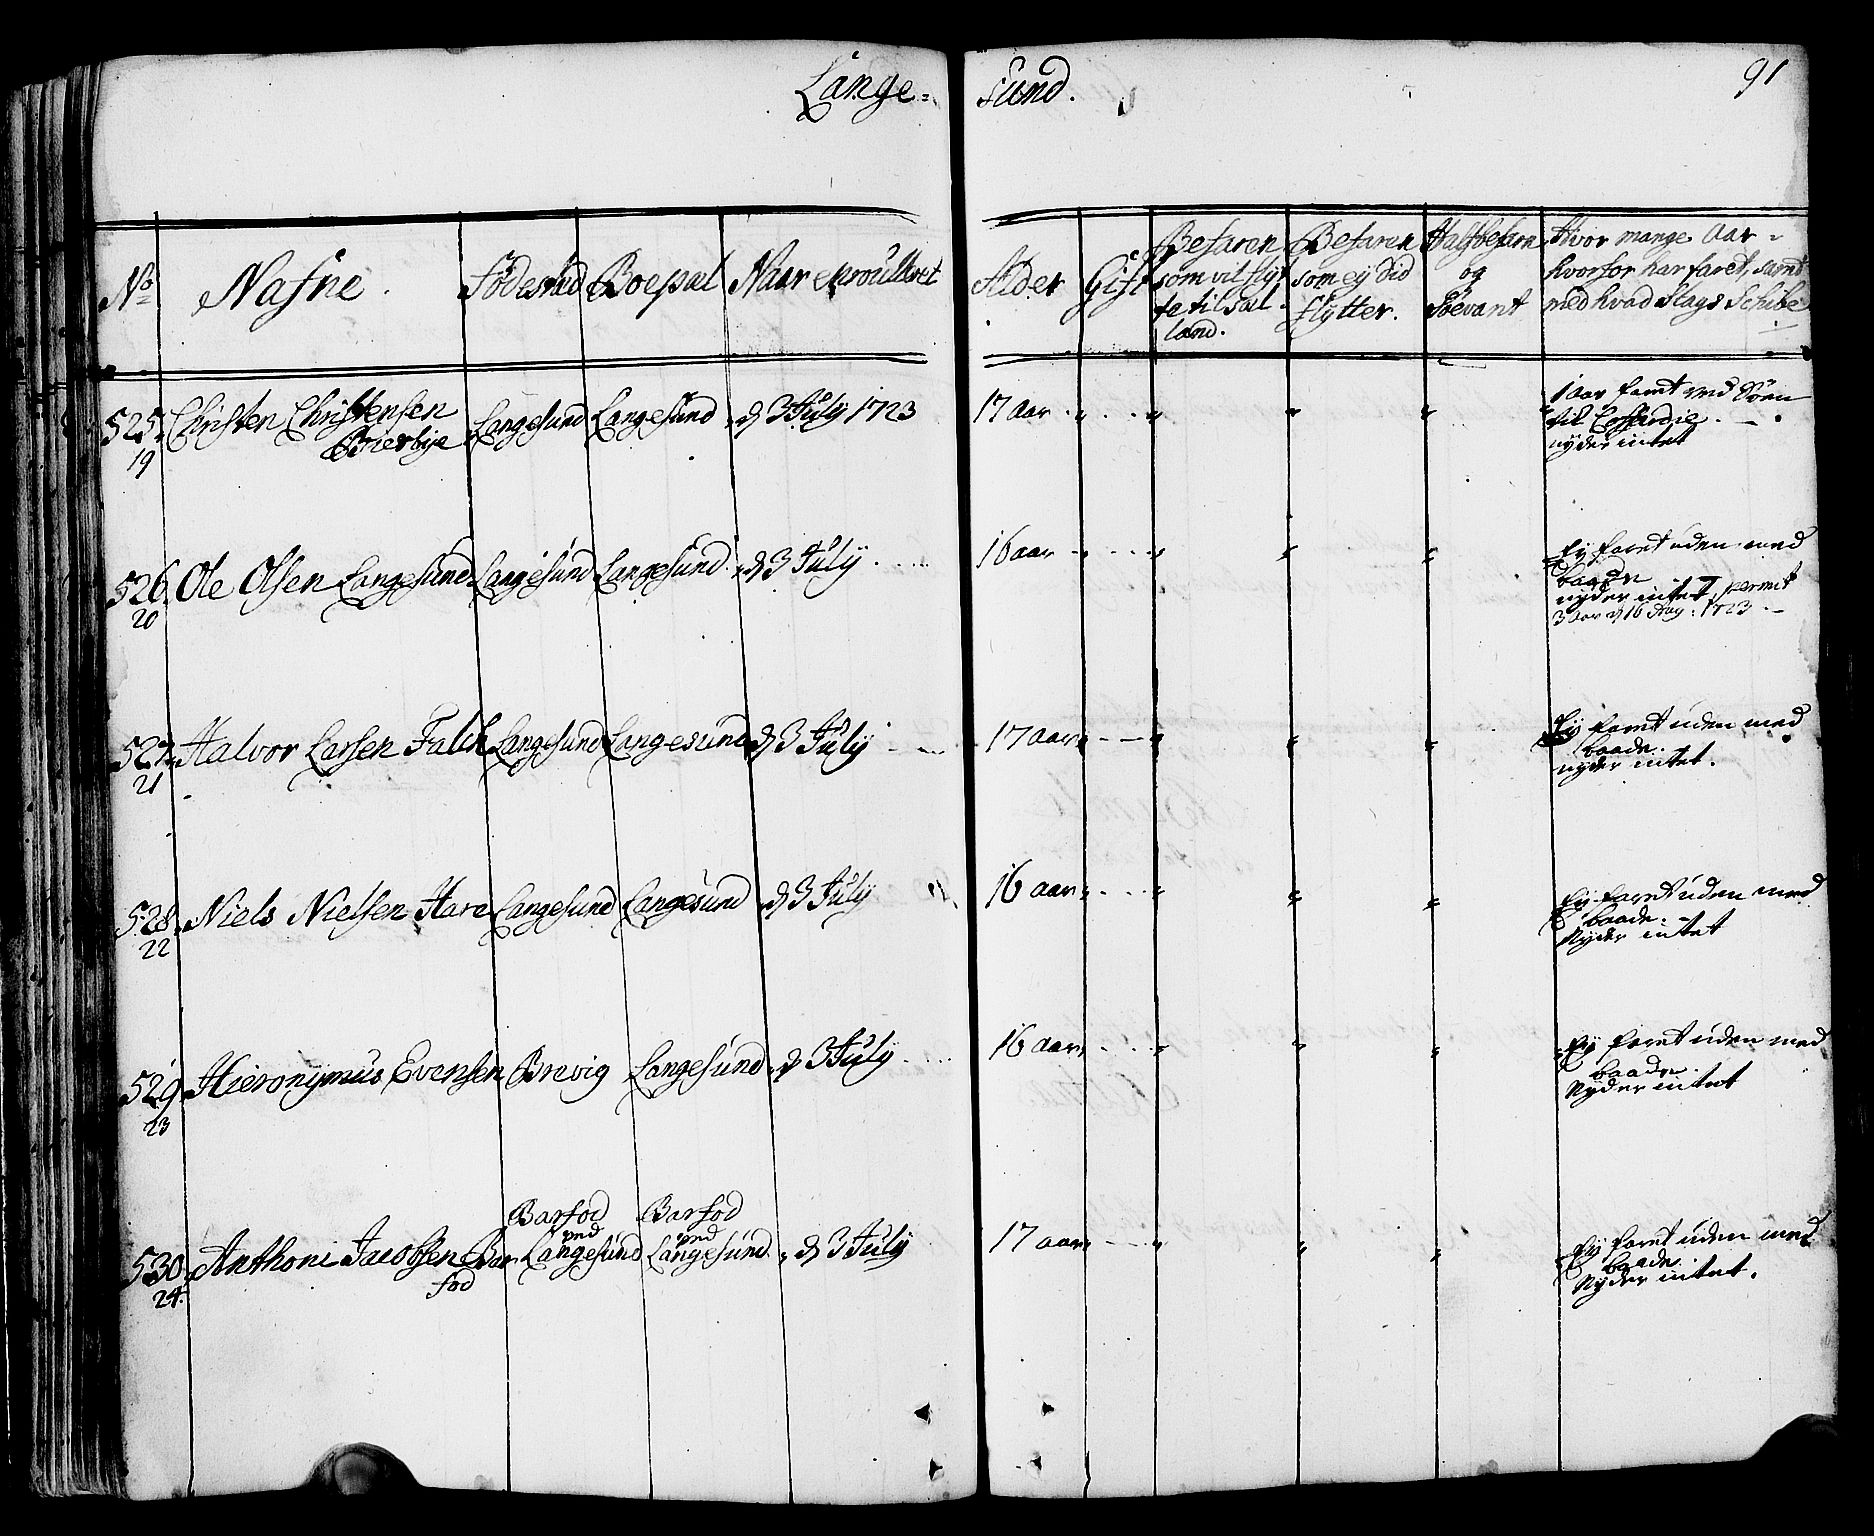 Lange= sund. 91
No Nafne. Fødested Boepæl Naar enroulleret Alder Gift Befaren som vil flyt te til Siæl land. Befaren som ej did flytter. Halfbefarn og Søevant Hvor mange Aar - hvorfor har faret, samt med hvad Slags Schibe
525. Christen Christensen Langesund Langesund d 3 July 1723 17 aar 1 aar faret med
19 Bierbye til
nyder intet
526. Ole Olsen Langesund Langesund Langesund d 3 July 16 aar Ej faret uden med
20 baade
nyder intet, permit
3 aar d 16 Aug. 1723
527. Halvor Larsen Falck Langesund Langesund d 3 July 17 aar Ej faret uden med
21 baade.
nyder intet.
528. Niels Nielsen Hare Langesund Langesund d 3 July 16 aar Ej faret uden med
22 baade.
Nyder intet
529. Hieronymus Evensen Brevig Langesund d 3 July 16 aar Ej faret uden med
23 baade.
Nyder intet
Barfod Barfod
ved ved
530. Anthoni Jacobsen Bar Langesund Langesund d 3 July 17 aar Ej faret uden med
24. fod baade.
Nyder intet.